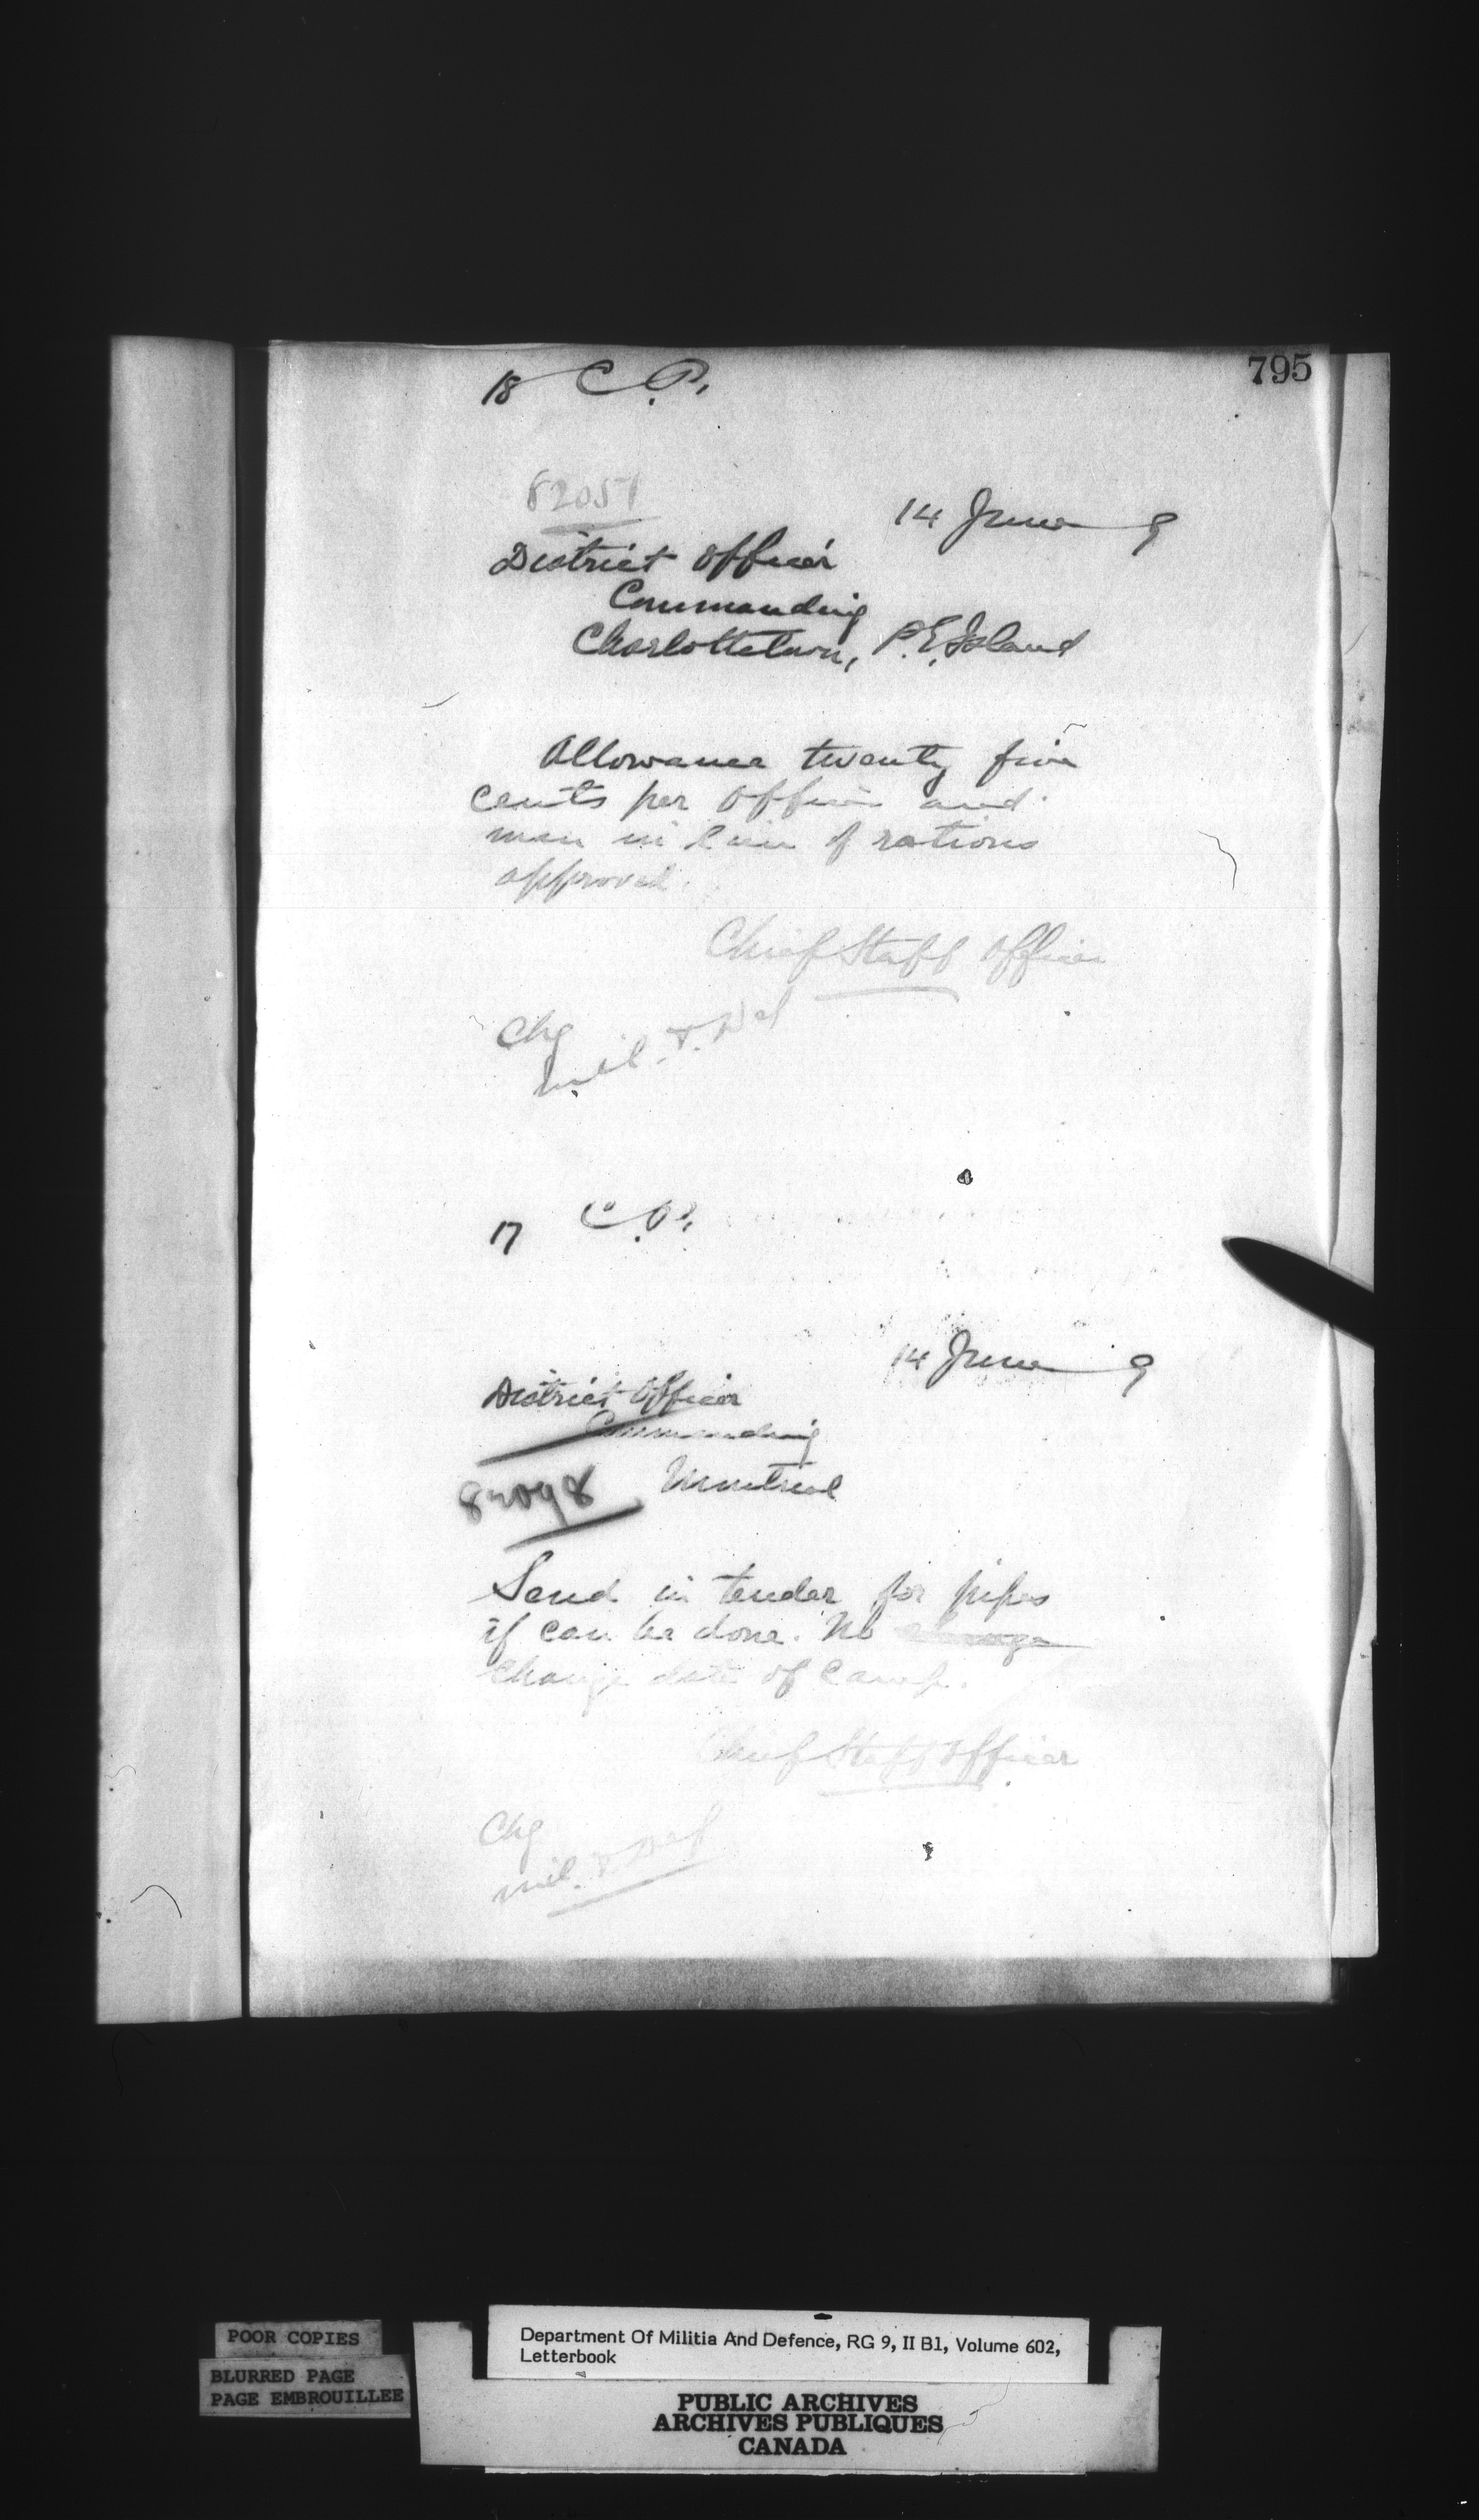 795
18 C.P.
82051
14 June 9
District Officer
Commanding
Charlottetown, P.E. Island
Allowance twenty five
cents per officer and
man in lieu of rations
approved.
Chief Staff Officer
Chg
Mil. & Def
17 C.P.
14 June 9
District Officer
Commanding
82098 Montreal
Send in tender for pipes
if can be done. No
change date of Camp.
Chief Staff Officer
Chg
Mil. & Def
POOR COPIES
BLURRED PAGE
PAGE EMBROUILLEE
Department Of Militia And Defence, RG 9, II B1, Volume 602,
Letterbook
PUBLIC ARCHIVES
ARCHIVES PUBLIQUES
CANADA